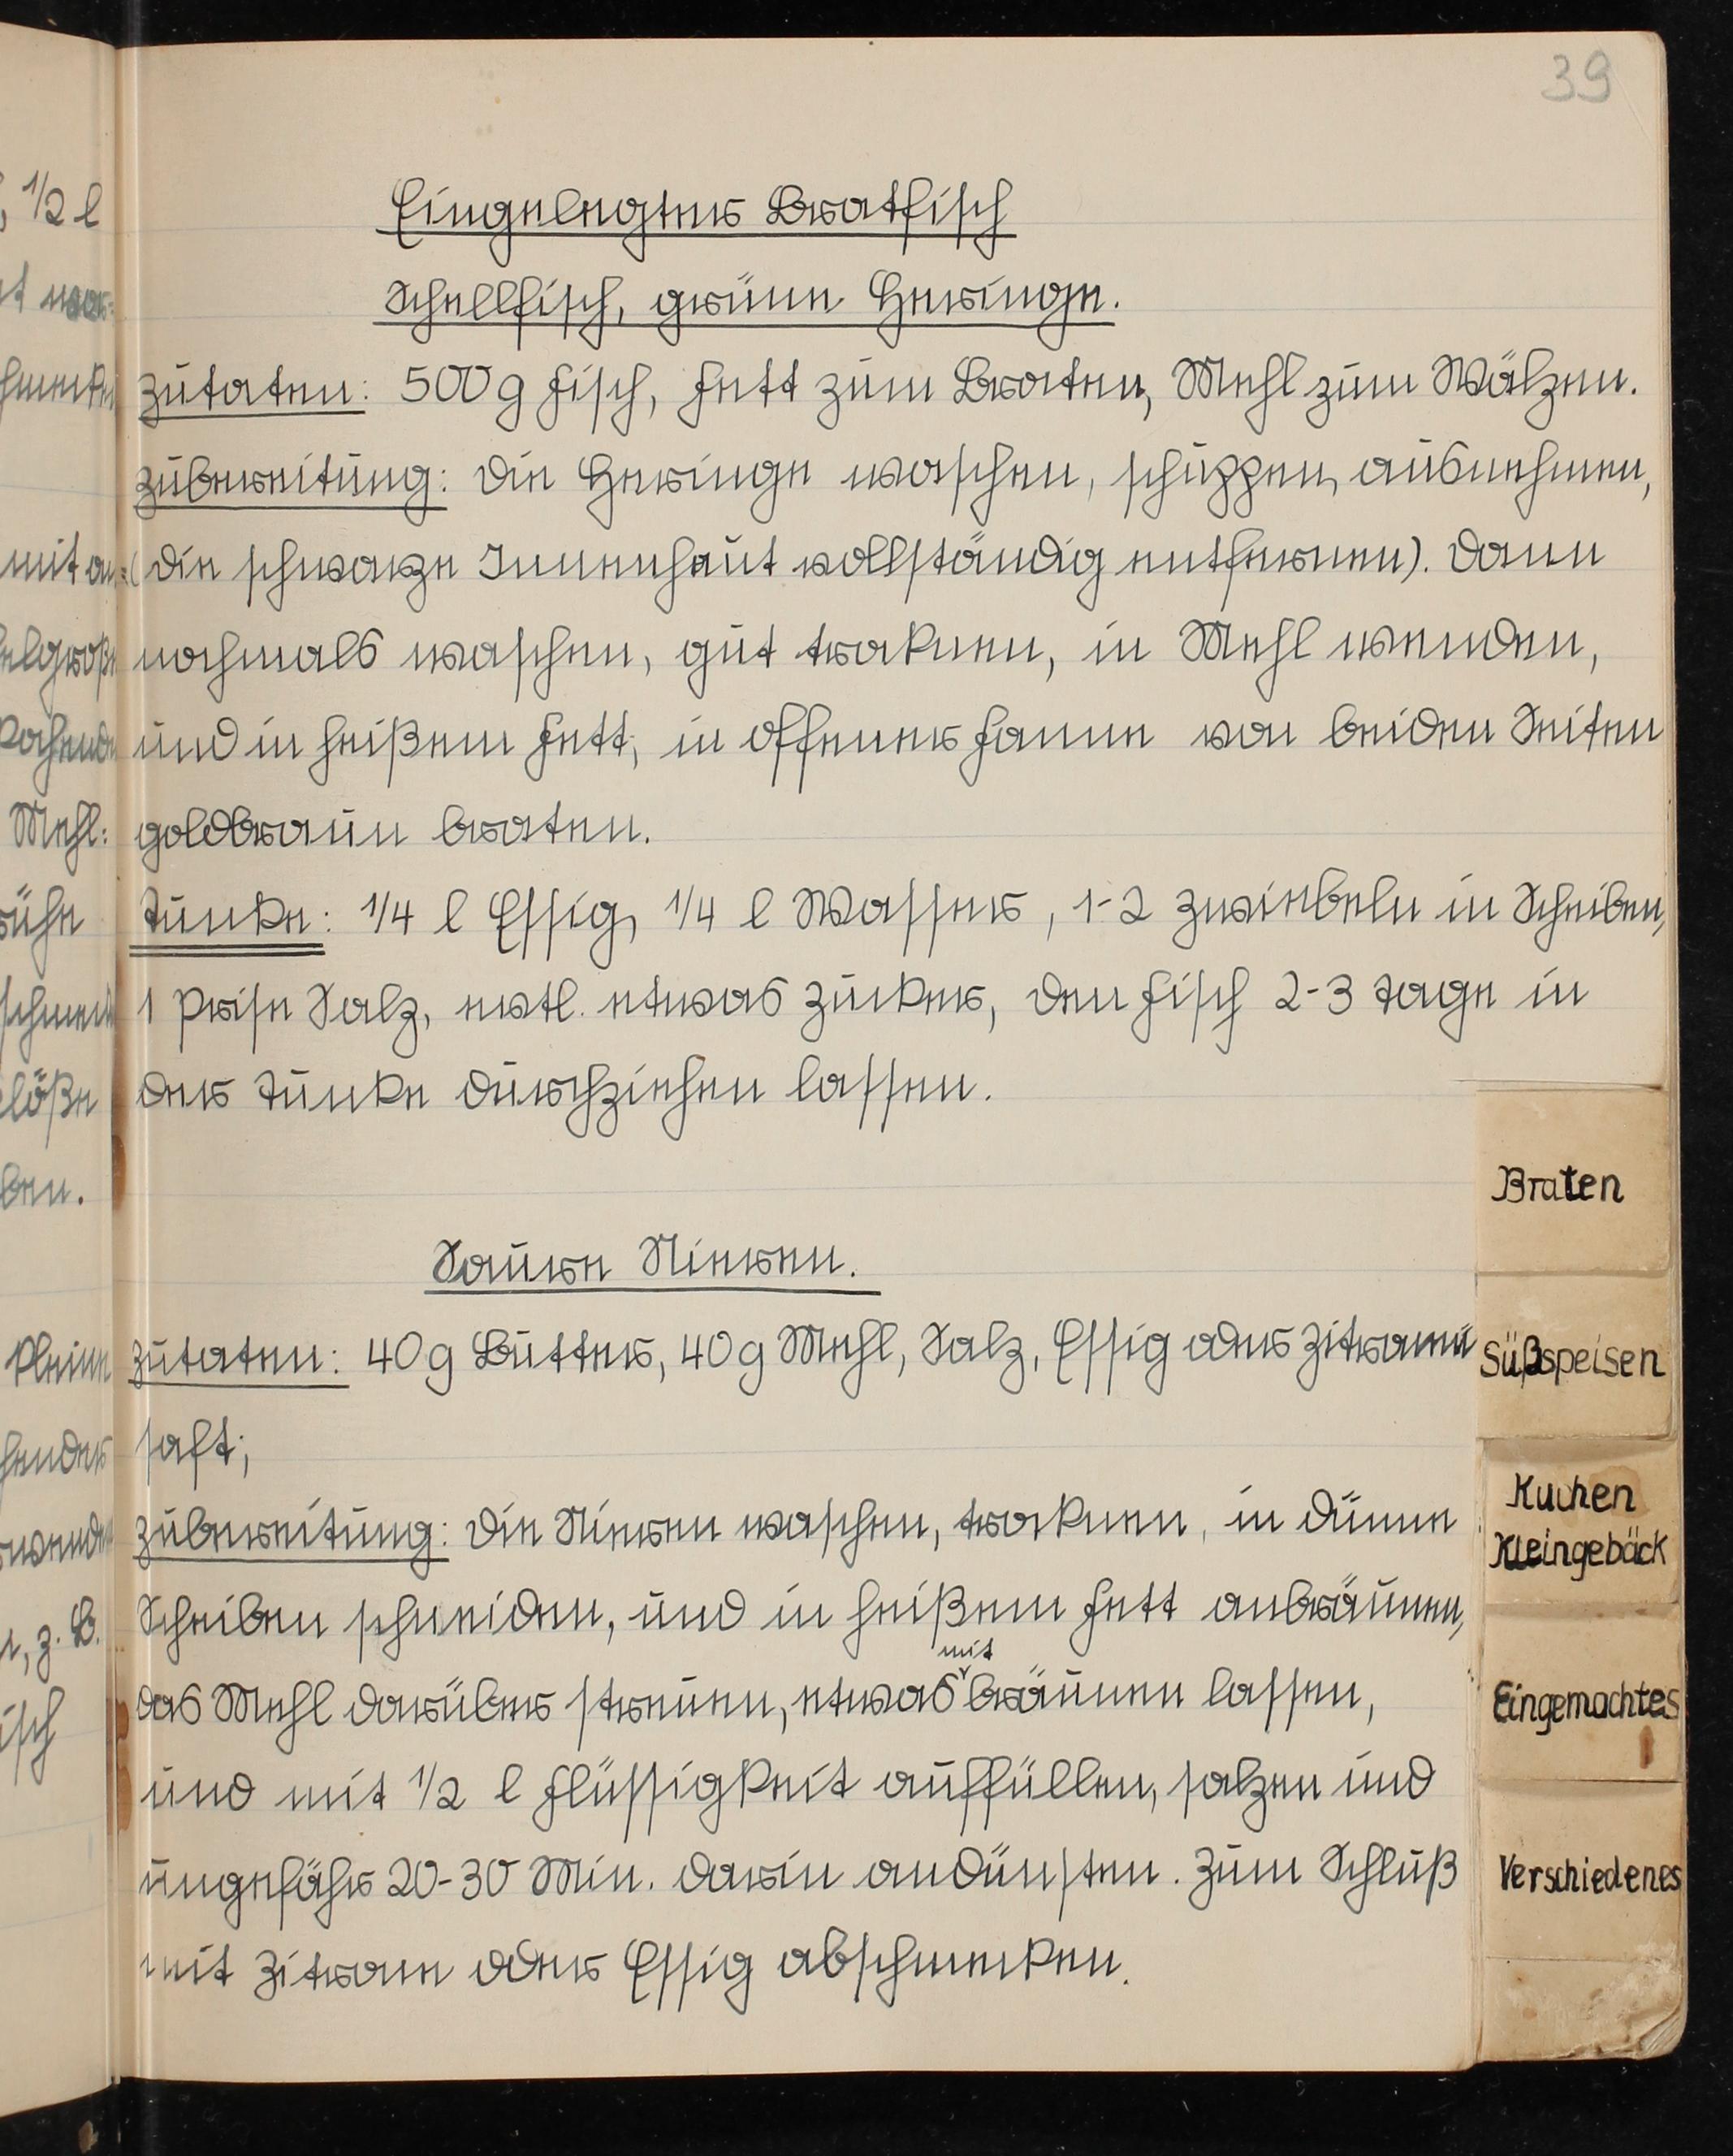 39
Eingelegter Bratfisch
Schellfisch, grüne Heringe.
Zutaten: 500 g Fisch, Fett zum Braten, Mehl zum Wälzen.
Zubereitung: Die Heringe waschen, schuppen, ausnehmen,
(die schwarze Innenhaut vollständig entfernen). Dann
nochmals waschen, gut trocknen, in Mehl wenden,
und in heißem Fett, in offener Fanne von beiden Seiten
goldbraun braten.
Tunke: 1/4 l Essig, 1/4 l Wasser, 1-2 Zwiebeln in Scheiben,
1 Prise Salz, evtl. etwas Zucker, den Fisch 2-3 Tage in
der Tunke durchziehen lassen.
Saure Nieren.
Zutaten: 40 g Butter, 40 g Mehl, Salz, Essig oder Zitronen
saft;
Zubereitung: Die Nieren waschen, trocknen, in dünne
Scheiben schneiden, und in heißem Fett anbräunen,
mit
das Mehl darüber streuen, etwas bräunen lassen,
und mit 1/2 l Flüssigkeit auffüllen, salzen und
ungefähr 20-30 Min. darin andünsten. Zum Schluß
mit Zitrone oder Essig abschmecken.
Braten
Süßspeisen
Kuchen
Kleingebäck
Eingemachtes
Verschiedenes
1/2 l
mit
Mehl:
z. B.